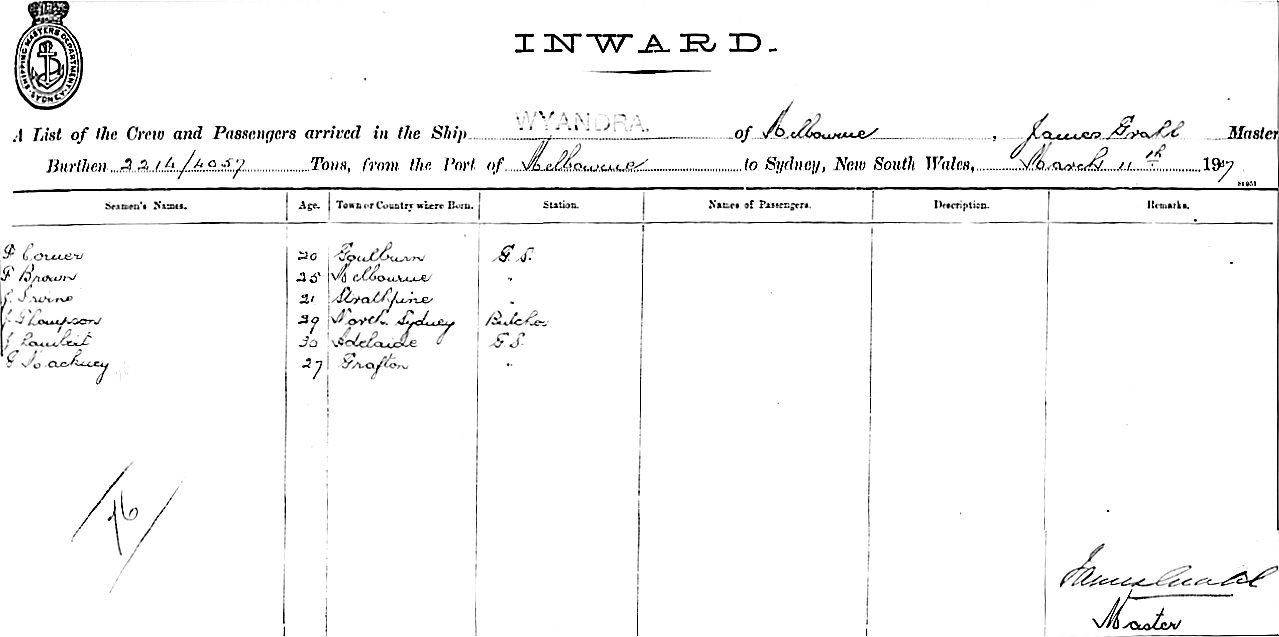 SHIPPING MASTERS DEPARTMENT SYDNEY
INWARD.
A List of the Crew and Passengers arrived in the Ship WYANDRA. of Melbourne, James Grahl Master
Burthen 2214/4057 Tons, from the Port of Melbourne to Sydney, New South Wales, March 11th 19
Seamen's Names. Age. Town or Country where Born. Station. Names of Passengers. Description. Remarks.
F Corner 20 Goulburn G.S.
F Brown 25 Melbourne "
J. Irvine 21 Strathpine "
J. Thompson 29 North Sydney Butcher
J Lambert 30 Adelaide G.S.
G Mackney 27 Grafton "
James Grahl
Master